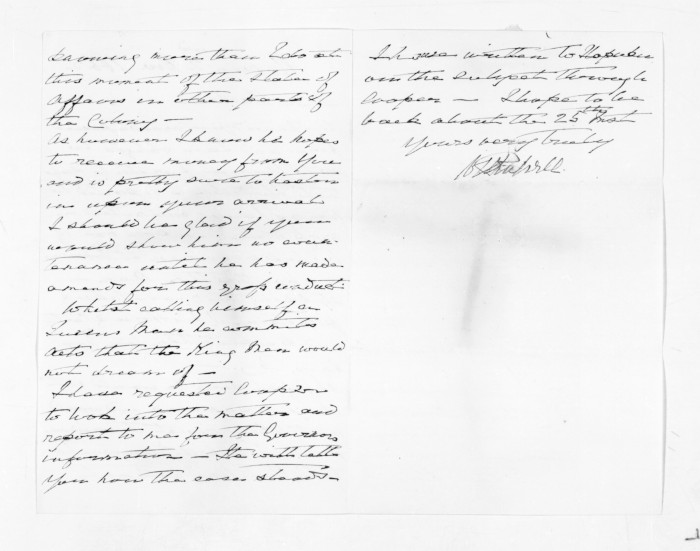 knowing more than I do at
this moment of the State of
Affairs in other parts of
the Colony —
As however I know he hopes
to receive money from you
and is pretty sure to hasten
in upon your arrival
I should be glad if you
would show him no coun-
tenance until he has made
amends for this gross conduct
Whilst calling himself a
Queens Man he commits
acts that the King Men would
not dream of —
I have requested Cooper
to look into the matter and
report to me for the Governors
information — He will tell
you how the case stands —
I have written to
on the subject through
Cooper — I hope to be
back about the 25th Inst
Yours very truly